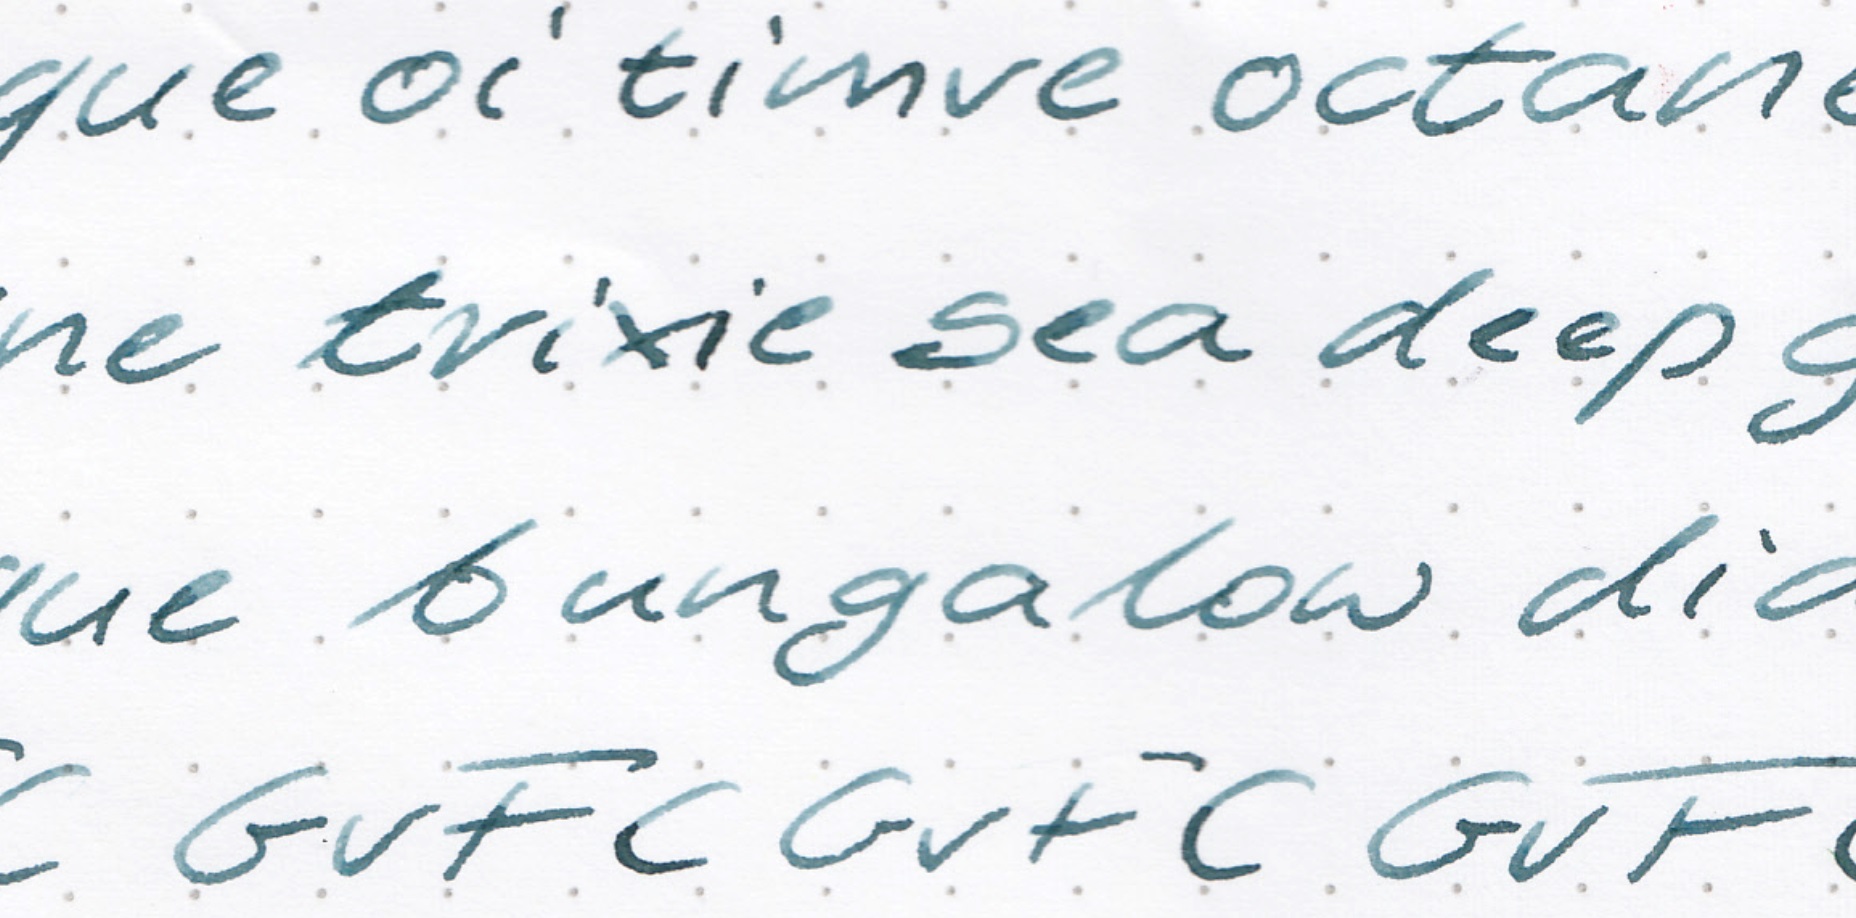 que oi timve octane
ne trixie sea deep g
que bungalow dia
C GvFC GvFC GvF